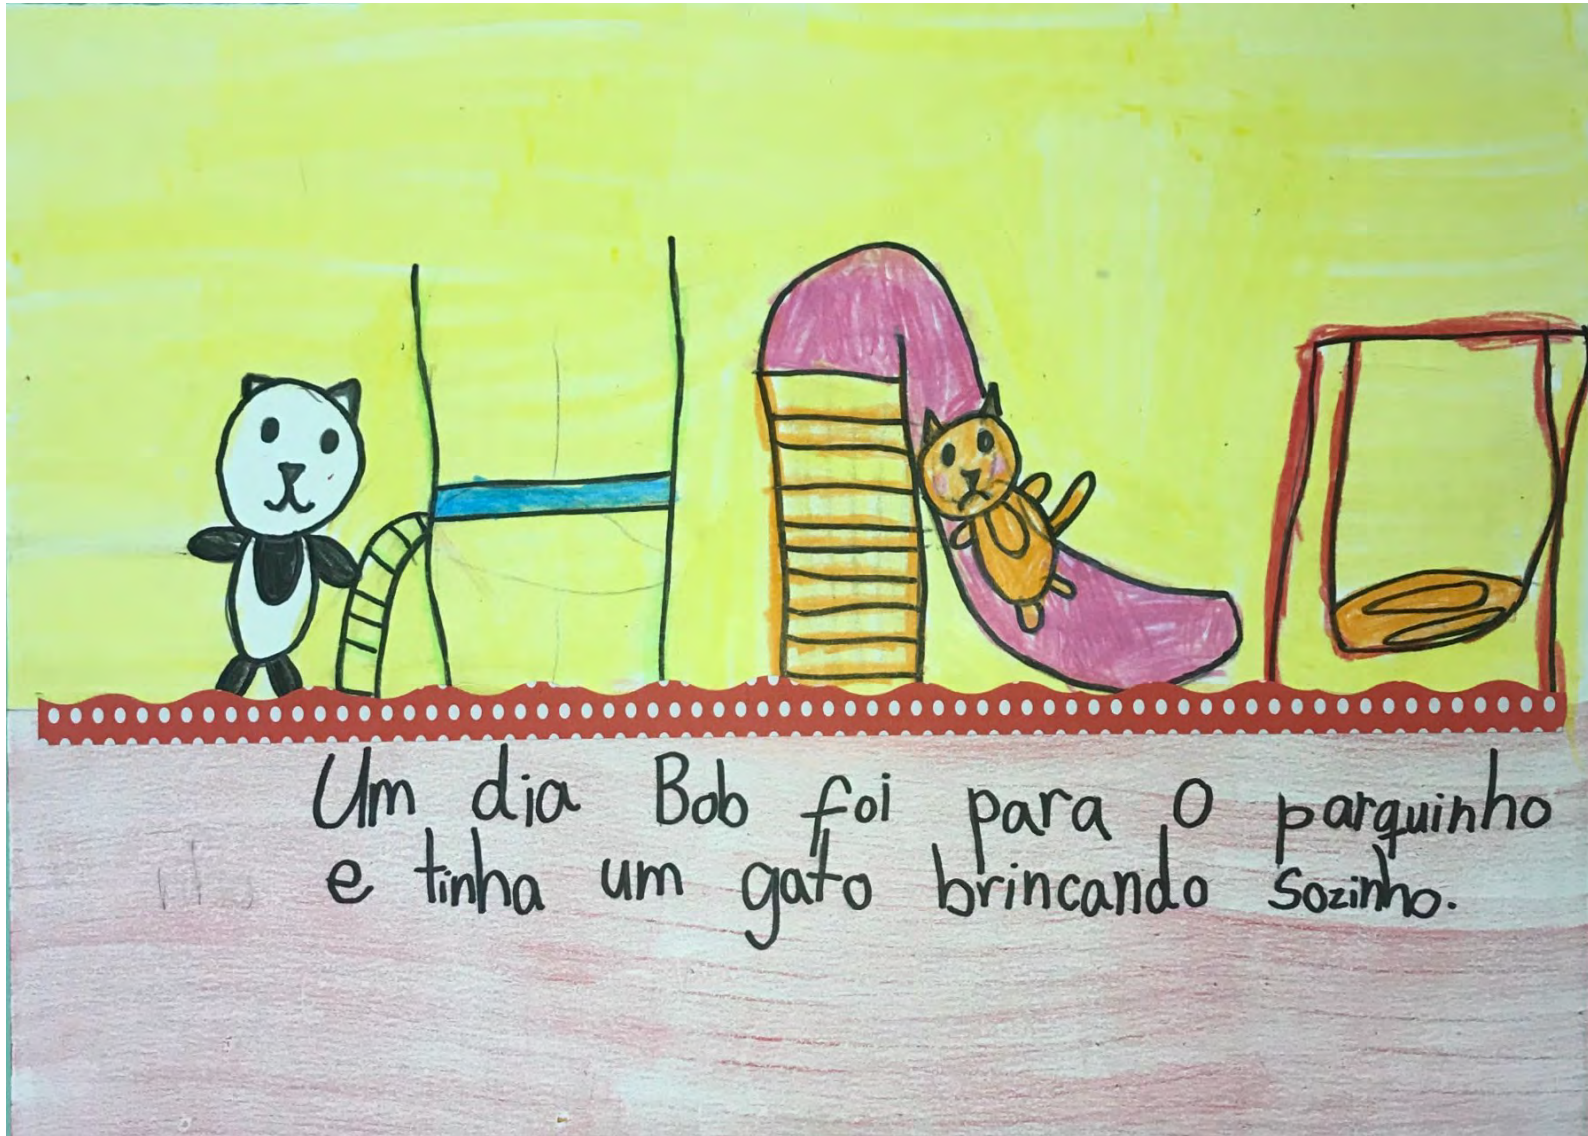 Um dia Bob foi para o parquinho
e tinha um gato brincando sozinho.